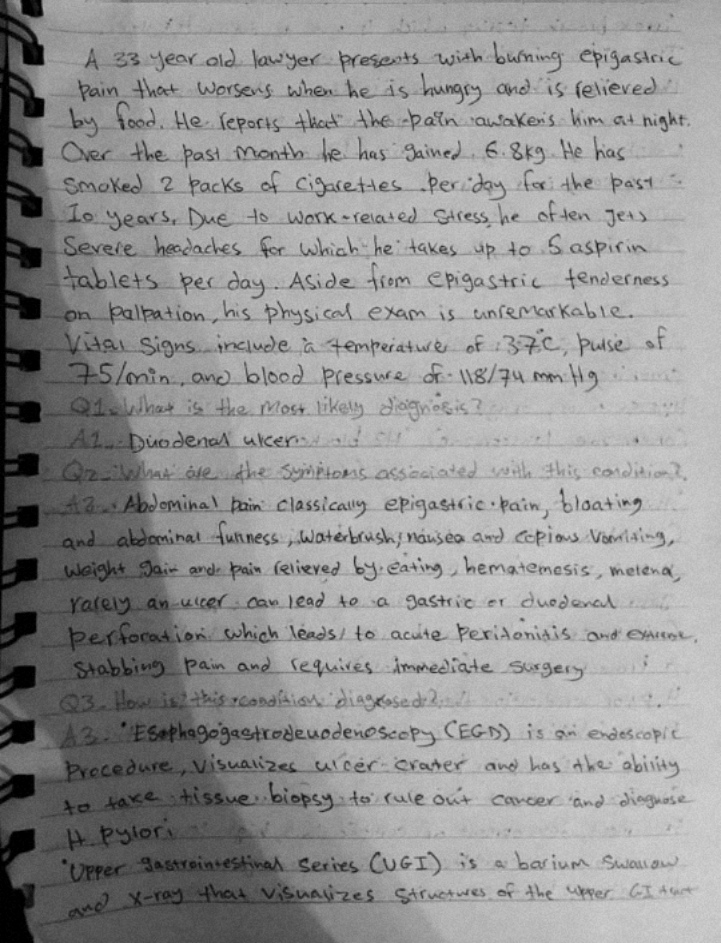 A 33 year old lawyer presents with burning epigastric
pain that worsens when he is hungry and is relieved
by food. He reports that the pain awakens him at night.
Over the past month he has gained 6.8kg. He has
smoked 2 packs of cigarettes per day for the past
10 years. Due to work-related stress, he often gets
severe headaches for which he takes up to 5 aspirin
tablets per day. Aside from epigastric tenderness
on palpation, his physical exam is unremarkable.
Vital signs include a temperature of 37°C, pulse of
75/min, and blood pressure of 118/74 mm Hg
Q1. What is the most likely diagnosis?
A1. Duodenal ulcer
Q2. What are the symptoms associated with this condition?
A2. Abdominal pain classically epigastric pain, bloating
and abdominal funness, waterbrush, nausea and copious vomiting,
weight gain and pain relieved by eating, hematemesis, melena,
rarely an ulcer can lead to a gastric or duodenal
perforation which leads to acute peritonitis and extreme,
stabbing pain and requires immediate surgery
Q3. How is this condition diagnosed?
A3. •Esophagogastrodeuodenoscopy (EGD) is an endoscopic
procedure, visualizes ulcer crater and has the ability
to take tissue biopsy to rule out cancer and diagnose
H. Pylori
•Upper gastrointestinal series (UGI) is a barium swallow
and x-ray that visualizes structures of the upper GI tract